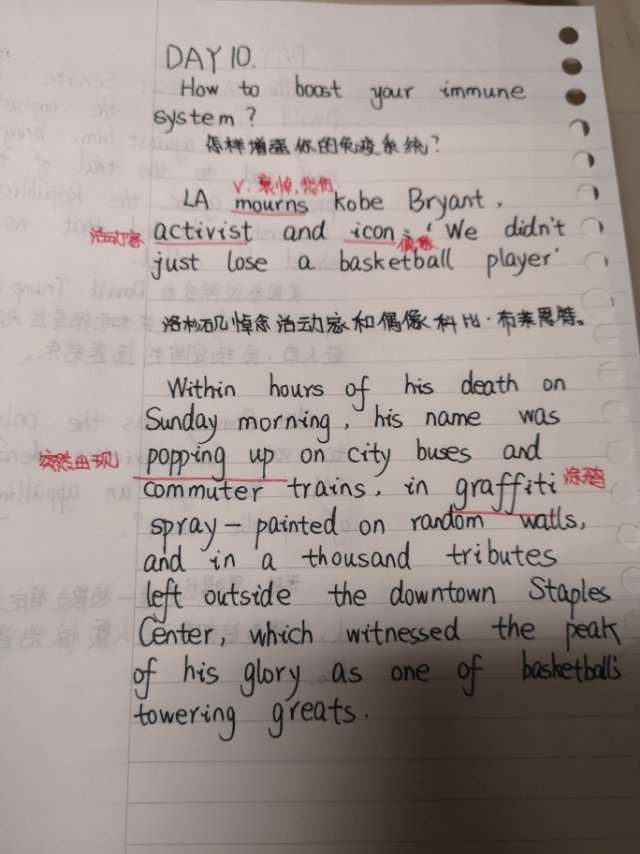 DAY 10.
How to boost your immune
system?
怎样增强你的免疫系统?
v. 哀悼,悲伤.
LA mourns kobe Bryant,
活动家 activist and icon: 'We didn't
偶像
just lose a basketball player'
洛杉矶悼念活动家和偶像科比·布莱恩特。
Within hours of his death on
Sunday morning, his name was
突然出现 popping up on city buses and
commuter trains, in graffiti 涂鸦
spray-painted on random walls,
and in a thousand tributes
left outside the downtown Staples
Center, which witnessed the peak
of his glory as one of basketball's
towering greats.